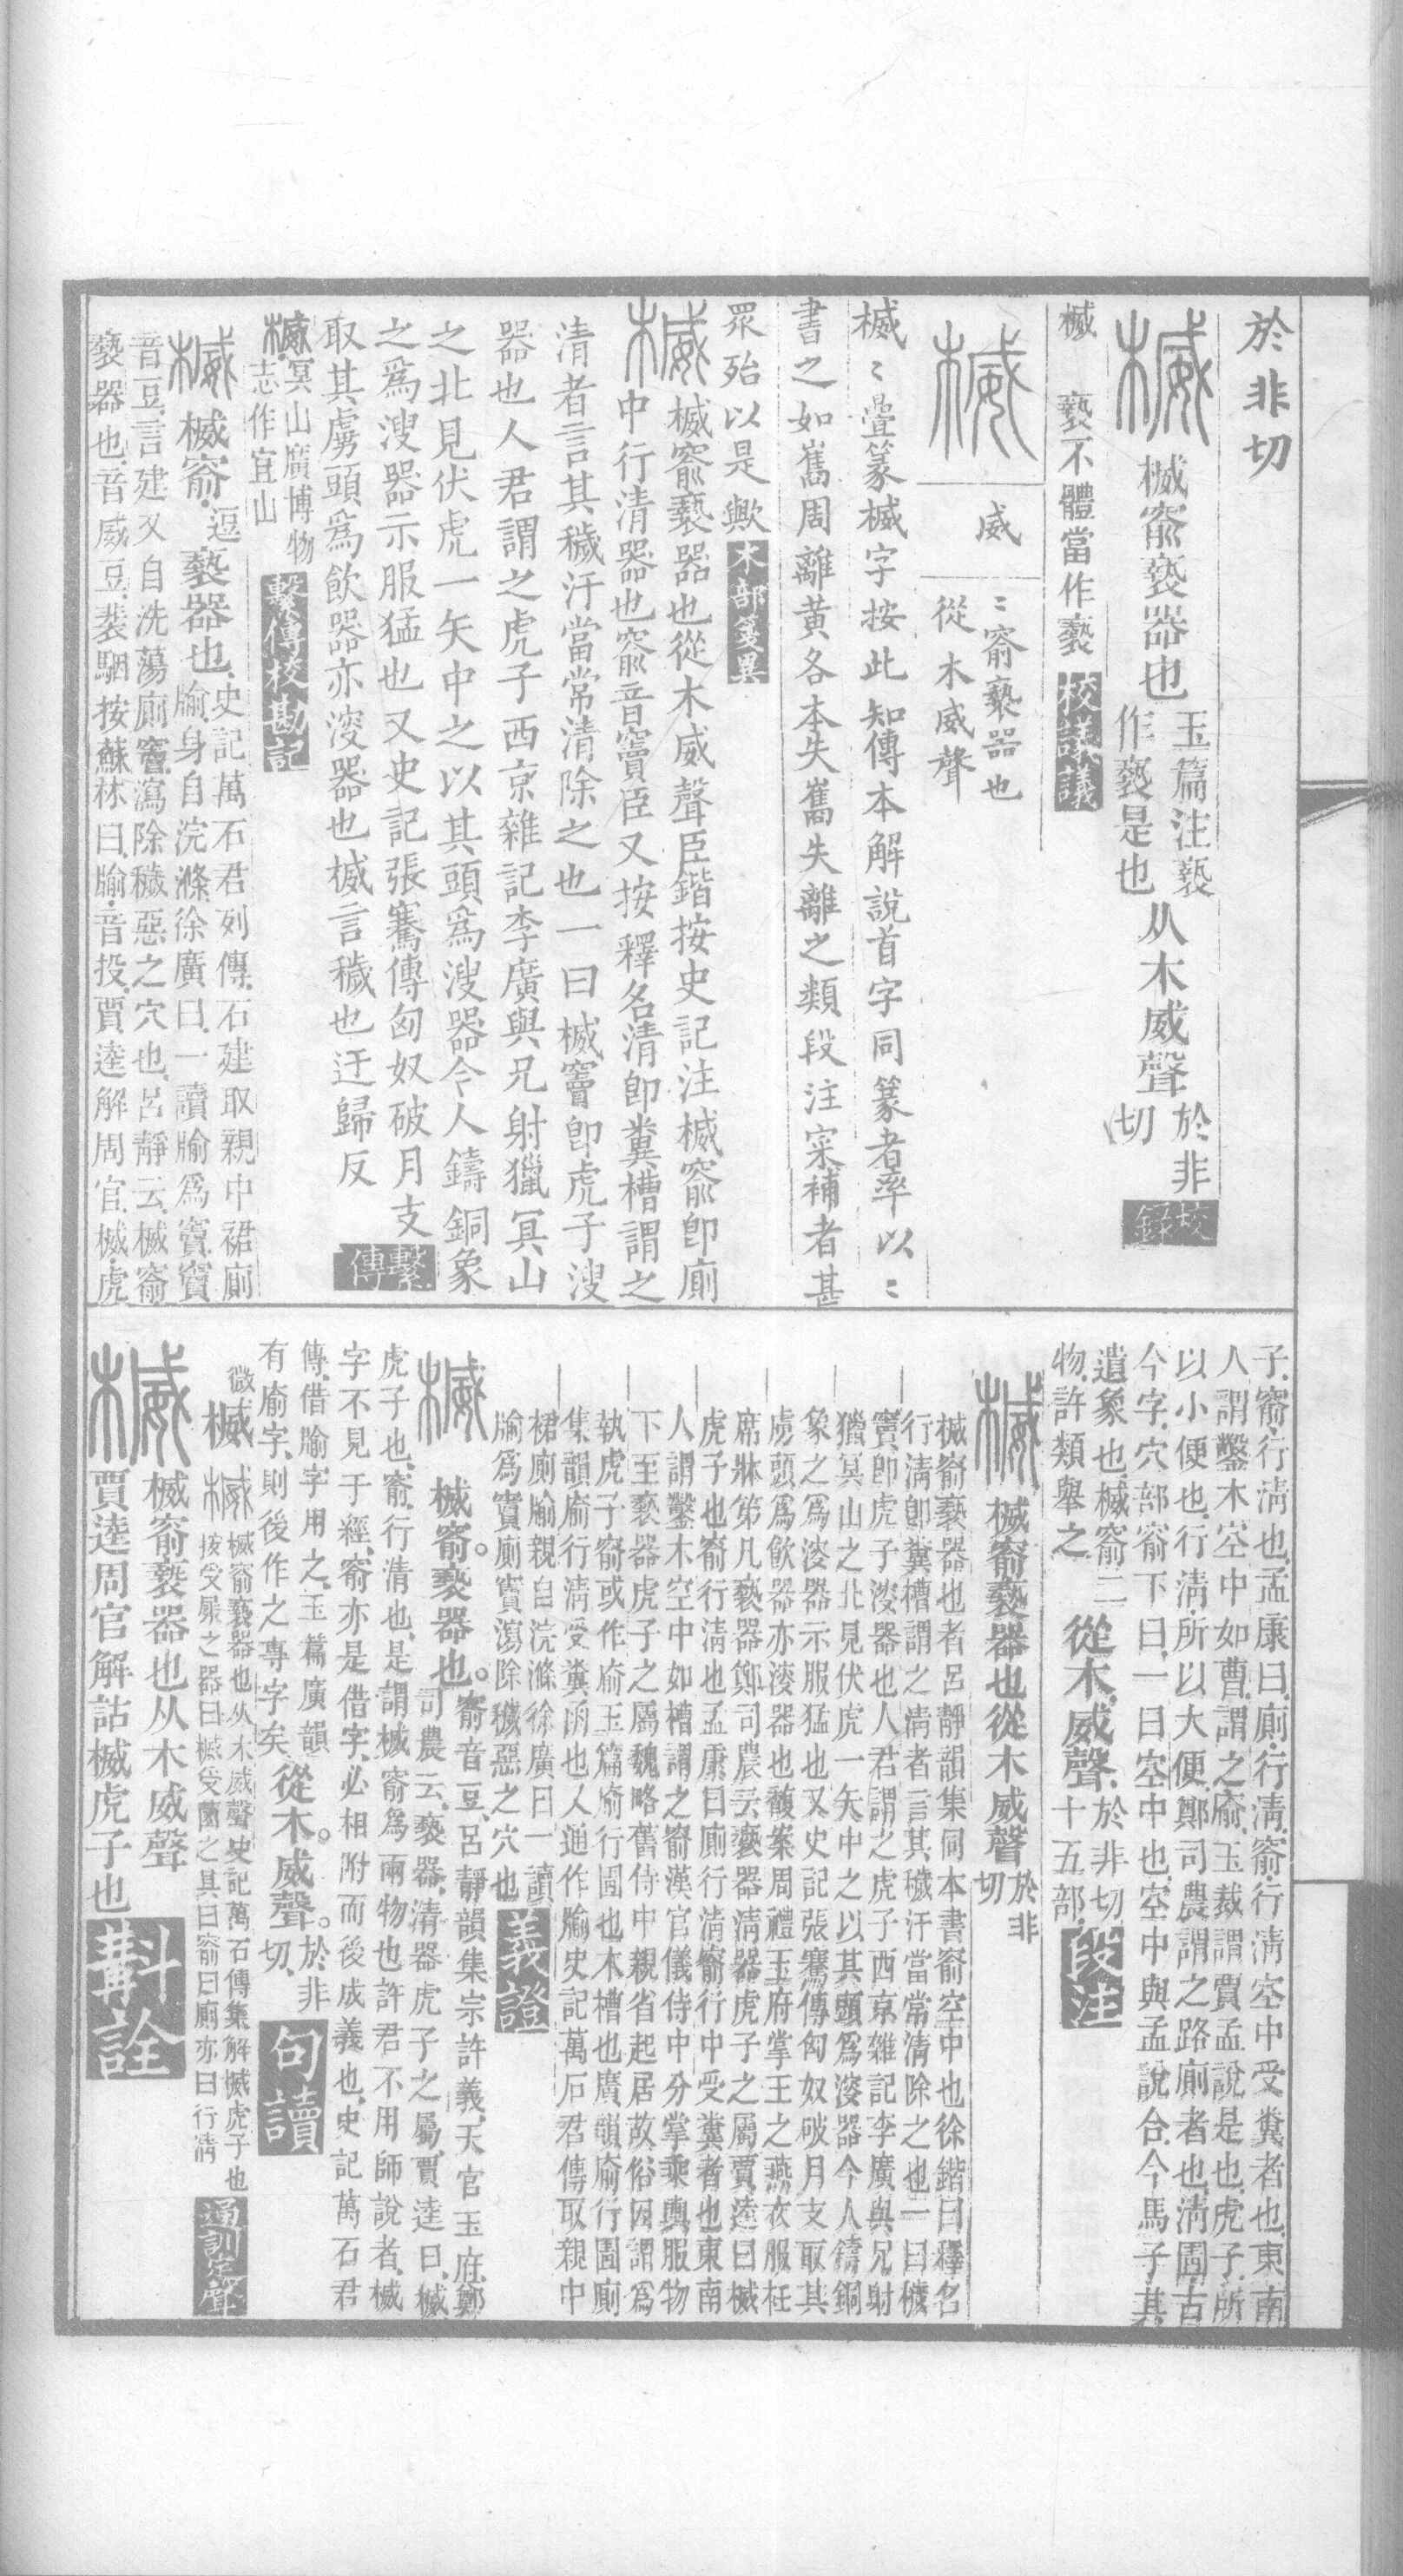 於非切
槭 楲窬褻器也
玉篇注褻
作褻是也
从木威聲
於非
切
校錄
楲 褻不體當作褻 校議議
楲
威
：窬褻器也
從木威聲
楲：疊篆楲字按此知傳本解說首字同篆者率以：
書之如嶲周離黃各本失嶲失離之類段注宷補者甚
眾殆以是歟 木部箋異
楲 楲窬褻器也從木威聲臣鍇按史記注楲窬即廁
中行清器也窬音竇臣又按釋名清即糞槽謂之
清者言其穢汙當常清除之也一曰楲竇即虎子溲
器也人君謂之虎子西京雜記李廣與兄射獵冥山
之北見伏虎一矢中之以其頭爲溲器令人鑄銅象
之爲溲器示服猛也又史記張騫傳匈奴破月支
取其虜頭爲飲器亦溲器也楲言穢也迂歸反
繫傳
楲 冥山廣博物
志作宜山
繫傳校勘記
楲 楲窬逗褻器也
史記萬石君列傳石建取親中裙廁
牏身自浣滌徐廣曰一讀牏爲竇竇
音豆言建又自洗蕩廁竇瀉除穢惡之穴也呂靜云楲窬
褻器也音威豆裴駰按蘇林曰牏音投賈逵解周官楲虎
子窬行清也孟康曰廁行清窬行清空中受糞者也東南
人謂鑿木空中如曹謂之㢏玉裁謂賈孟說是也虎子所
以小便也行清所以大便鄭司農謂之路廁者也清圊古
今字穴部窬下曰一曰空中也空中與孟說合今馬子其
遺象也楲窬二
物許類舉之
從木威聲
於非切
十五部
段注
楲 楲窬褻器也從木威聲
於非
切
楲窬褻器也者呂靜韻集同本書窬空中也徐鍇曰釋名
行清即糞槽謂之清者言其穢汙當常清除之也一曰楲
竇即虎子溲器也人君謂之虎子西京雜記李廣與兄射
獵冥山之北見伏虎一矢中之以其頭爲溲器令人鑄銅
象之爲溲器示服猛也又史記張騫傳匈奴破月支取其
虜頭爲飲器亦溲器也馥案周禮玉府掌王之燕衣服衽
席牀笫凡褻器鄭司農云褻器清器虎子之屬賈逵曰楲
虎子也窬行清也孟康曰廁行清窬行中受糞者也東南
人謂鑿木空中如槽謂之窬漢官儀侍中分掌乘輿服物
下至褻器虎子之屬魏略舊侍中親省起居故俗因謂爲
執虎子窬或作㢏玉篇㢏行圊也木槽也廣韻㢏行圊廁
集韻㢏行清受糞函也人通作牏史記萬石君傳取親中
裙廁牏親自浣滌徐廣曰一讀
牏爲竇廁竇瀉除穢惡之穴也
義證
楲 楲窬。褻器也。
窬音豆呂靜韻集宗許義天官玉府鄭
司農云褻器清器虎子之屬賈逵曰楲
虎子也窬行清也是謂楲窬爲兩物也許君不用師說者楲
字不見于經窬亦是借字必相附而後成義也史記萬石君
傳借牏字用之玉篇廣韻
有㢏字則後作之專字矣
從木。威聲。
於非
切
句讀
微 楲
楲 楲窬褻器也从木威聲史記萬石傳集解楲虎子也
按受㞙之器曰楲受菌之具曰窬曰廁亦曰行清
通訓定聲
楲 楲窬褻器也从木威聲
賈逵周官解詁楲虎子也
斠詮